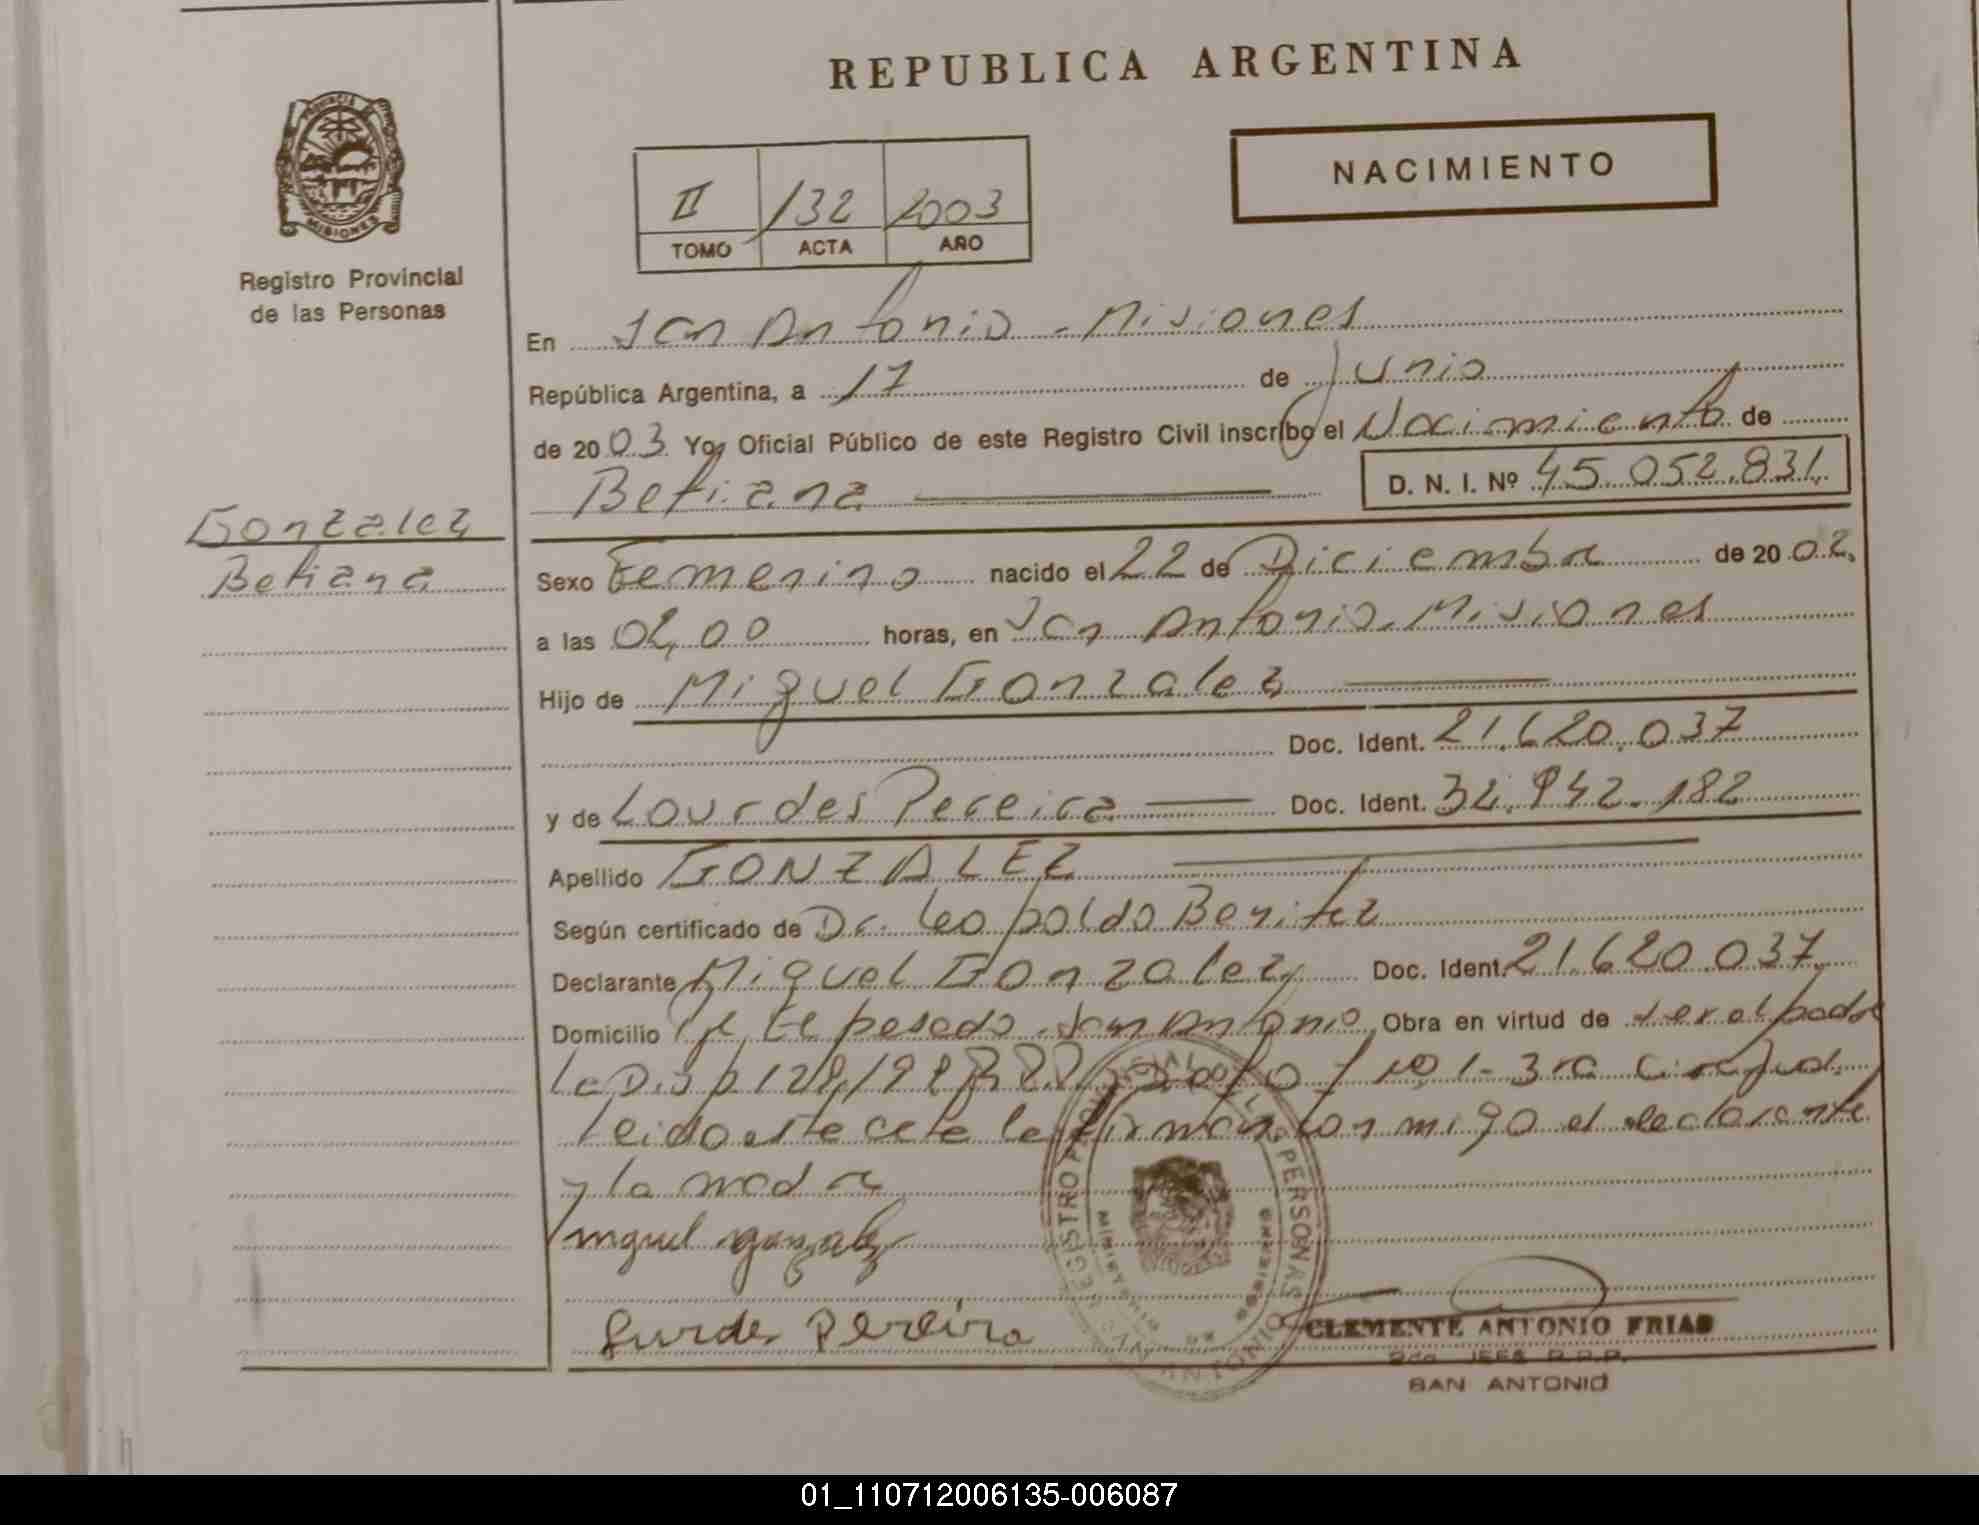 REPUBLICA ARGENTINA
NACIMIENTO
II 132 2003
TOMO ACTA AÑO
PROVINCIA
MISIONES
Registro Provincial
de las Personas
En San Antonio - Misiones
República Argentina, a 17 de Junio
de 2003 Yo, Oficial Público de este Registro Civil inscribo el Nacimiento de
Betiana D. N. I. Nº 45.052.831
Gonzalez
Betiana
Sexo Femenino nacido el 22 de Diciembre de 2002.
a las 02,00 horas, en San Antonio. Misiones
Hijo de Miguel Gonzalez
Doc. Ident. 21.620.037
y de Lourdes Pereira Doc. Ident. 32.942.182
Apellido GONZALEZ
Según certificado de Dr. Leopoldo Benitez
Declarante Miguel Gonzalez Doc. Ident. 21.620.037
Domicilio San Antonio Obra en virtud de ser el padre
Leido este acta la firman conmigo el declarante
y la madre
miguel gonzalez
Lurdes Pereira
REGISTRO PERSONAS
MINISTERIO DE GOBIERNO
SAN ANTONIO
CLEMENTE ANTONIO FRIAS
JEFE R.P.P.
SAN ANTONIO
01_110712006135-006087